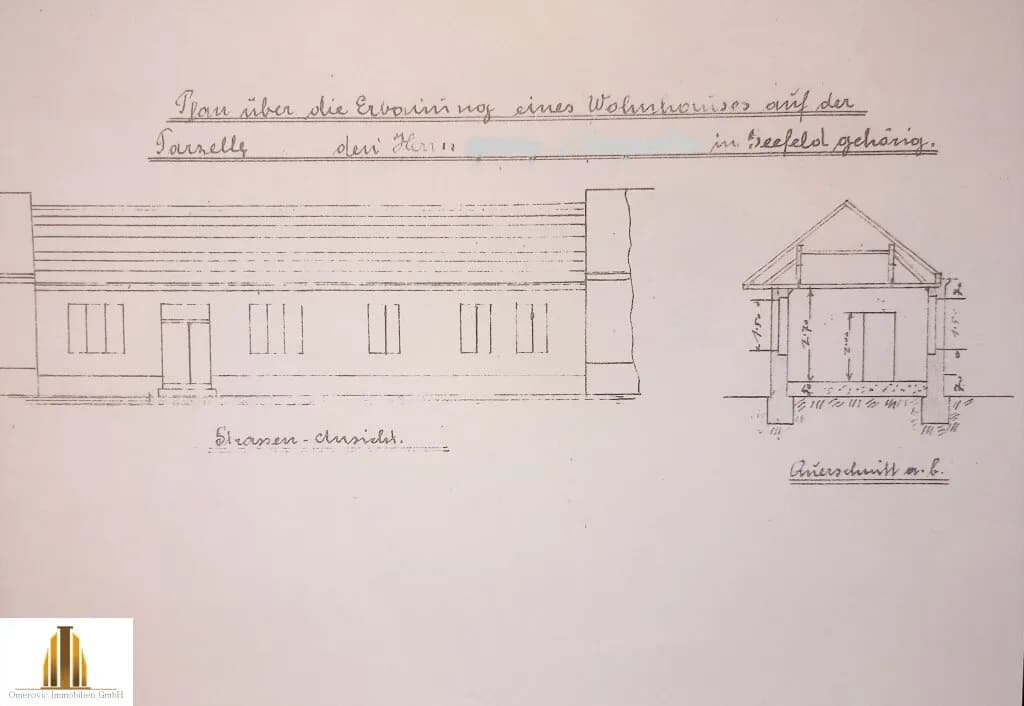 Plan über die Erbauung eines Wohnhauses auf der
Parzelle den Herrn in Seefeld gehörig.
1.50
2.70
2.00
1.5
Strassen-Ansicht.
Querschnitt a. b.
Omerovic Immobilien GmbH